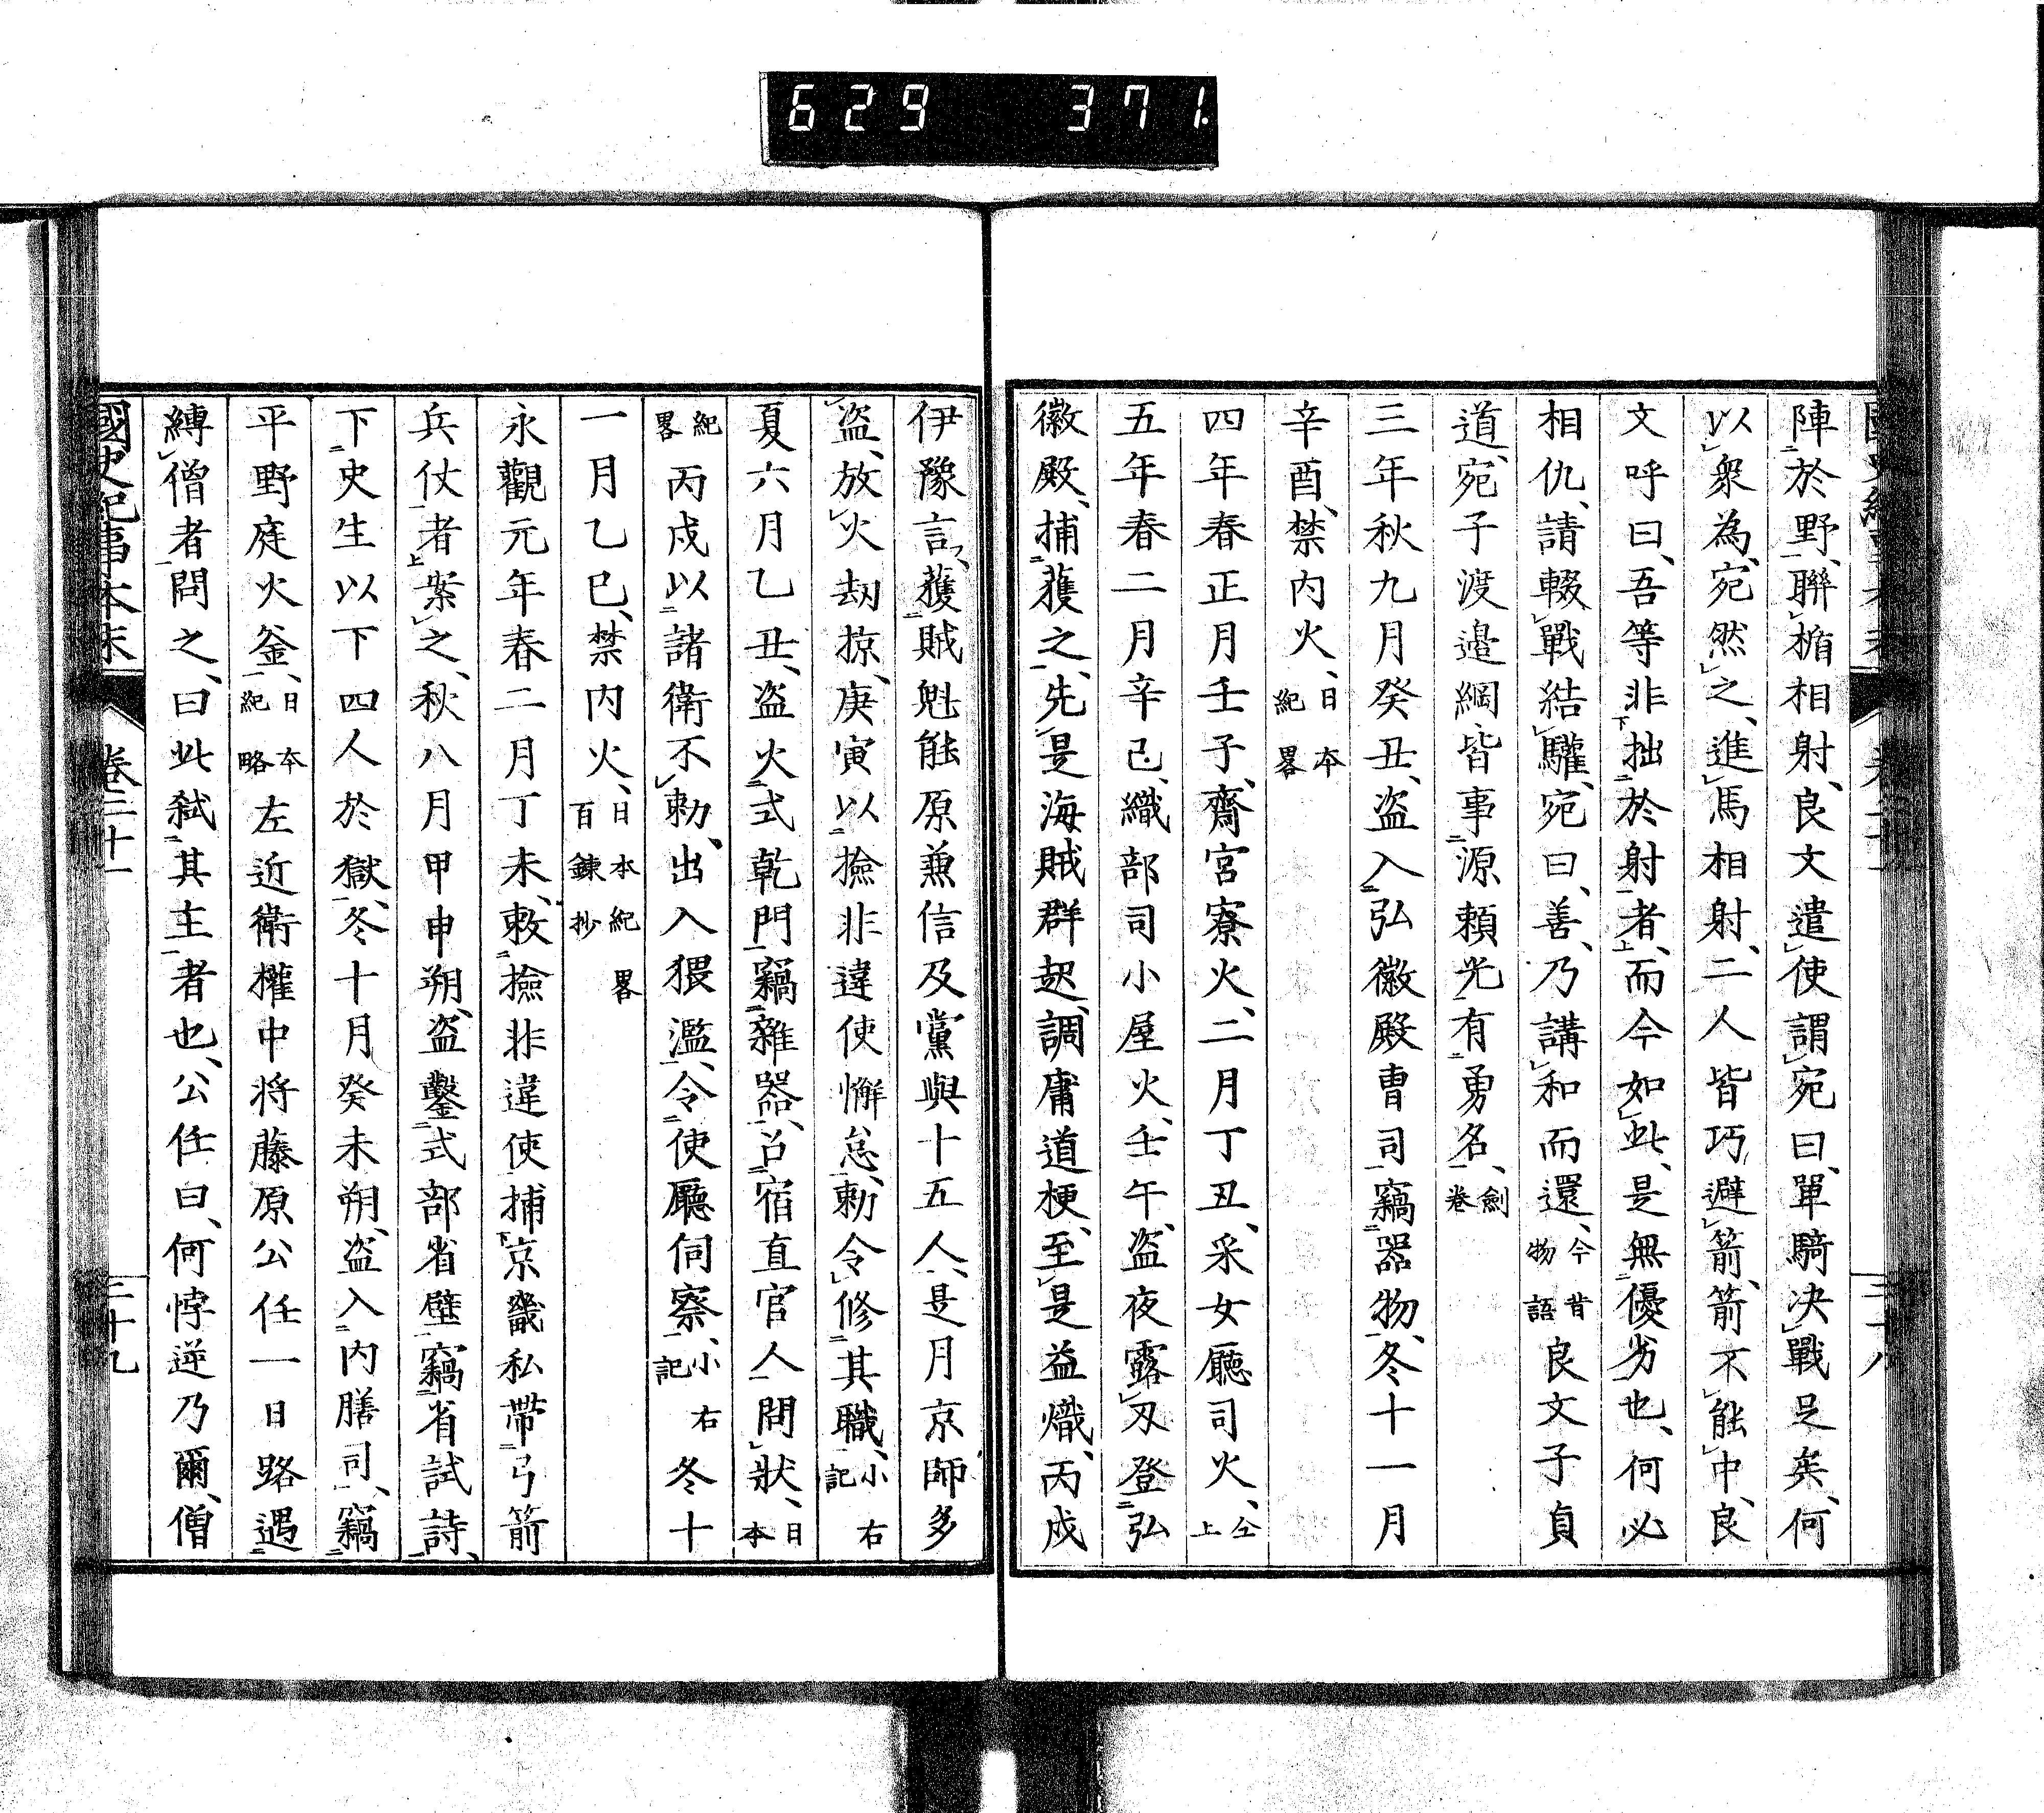 629 371.
陣於野、聯楯相射、良文遣使謂宛曰、單騎決戰足矣、何
以衆為、宛然之、進馬相射、二人皆巧避箭、箭不能中、良
文呼曰、吾等非拙於射者、而今如此、是無優劣也、何必
相仇、請輟戰結驩、宛曰、善、乃講和而還、今昔物語良文子貞
道、宛子渡邉綱皆事源頼光有勇名、劍卷
三年秋九月癸丑、盗入弘徽殿曹司竊器物、冬十一月
辛酉、禁内火、日本紀畧
四年春正月壬子、齋宮寮火、二月丁丑、采女廳司火、仝上
五年春二月辛已、織部司小屋火、壬午、盗夜露刃登弘
徽殿、捕獲之、先是海賊群起、調庸道梗、至是益熾、丙戍
伊豫言、獲賊魁能原兼信及黨與十五人、是月京師多
盗、放火刼掠、庚寅以撿非違使懈怠、勅令修其職、小右記
夏六月乙丑、盗火式乾門竊雜器、召宿直官人問狀、日本
紀畧丙戍以諸衛不勅、出入猥濫、令使廳伺察、小右記冬十
一月乙巳、禁内火、日本紀畧百錬抄
永觀元年春二月丁未、敕撿非違使捕京畿私帶弓箭
兵仗者案之、秋八月甲申朔、盗鑿式部省壁竊省試詩、
下史生以下四人於獄、冬十月癸未朔、盗入内膳司、竊
平野庭火釜、日本紀略左近衛權中将藤原公任一日路遇
縛僧者問之、曰此弑其主者也、公任曰、何悖逆乃爾、僧
國史紀事本末 卷二十一 二十九